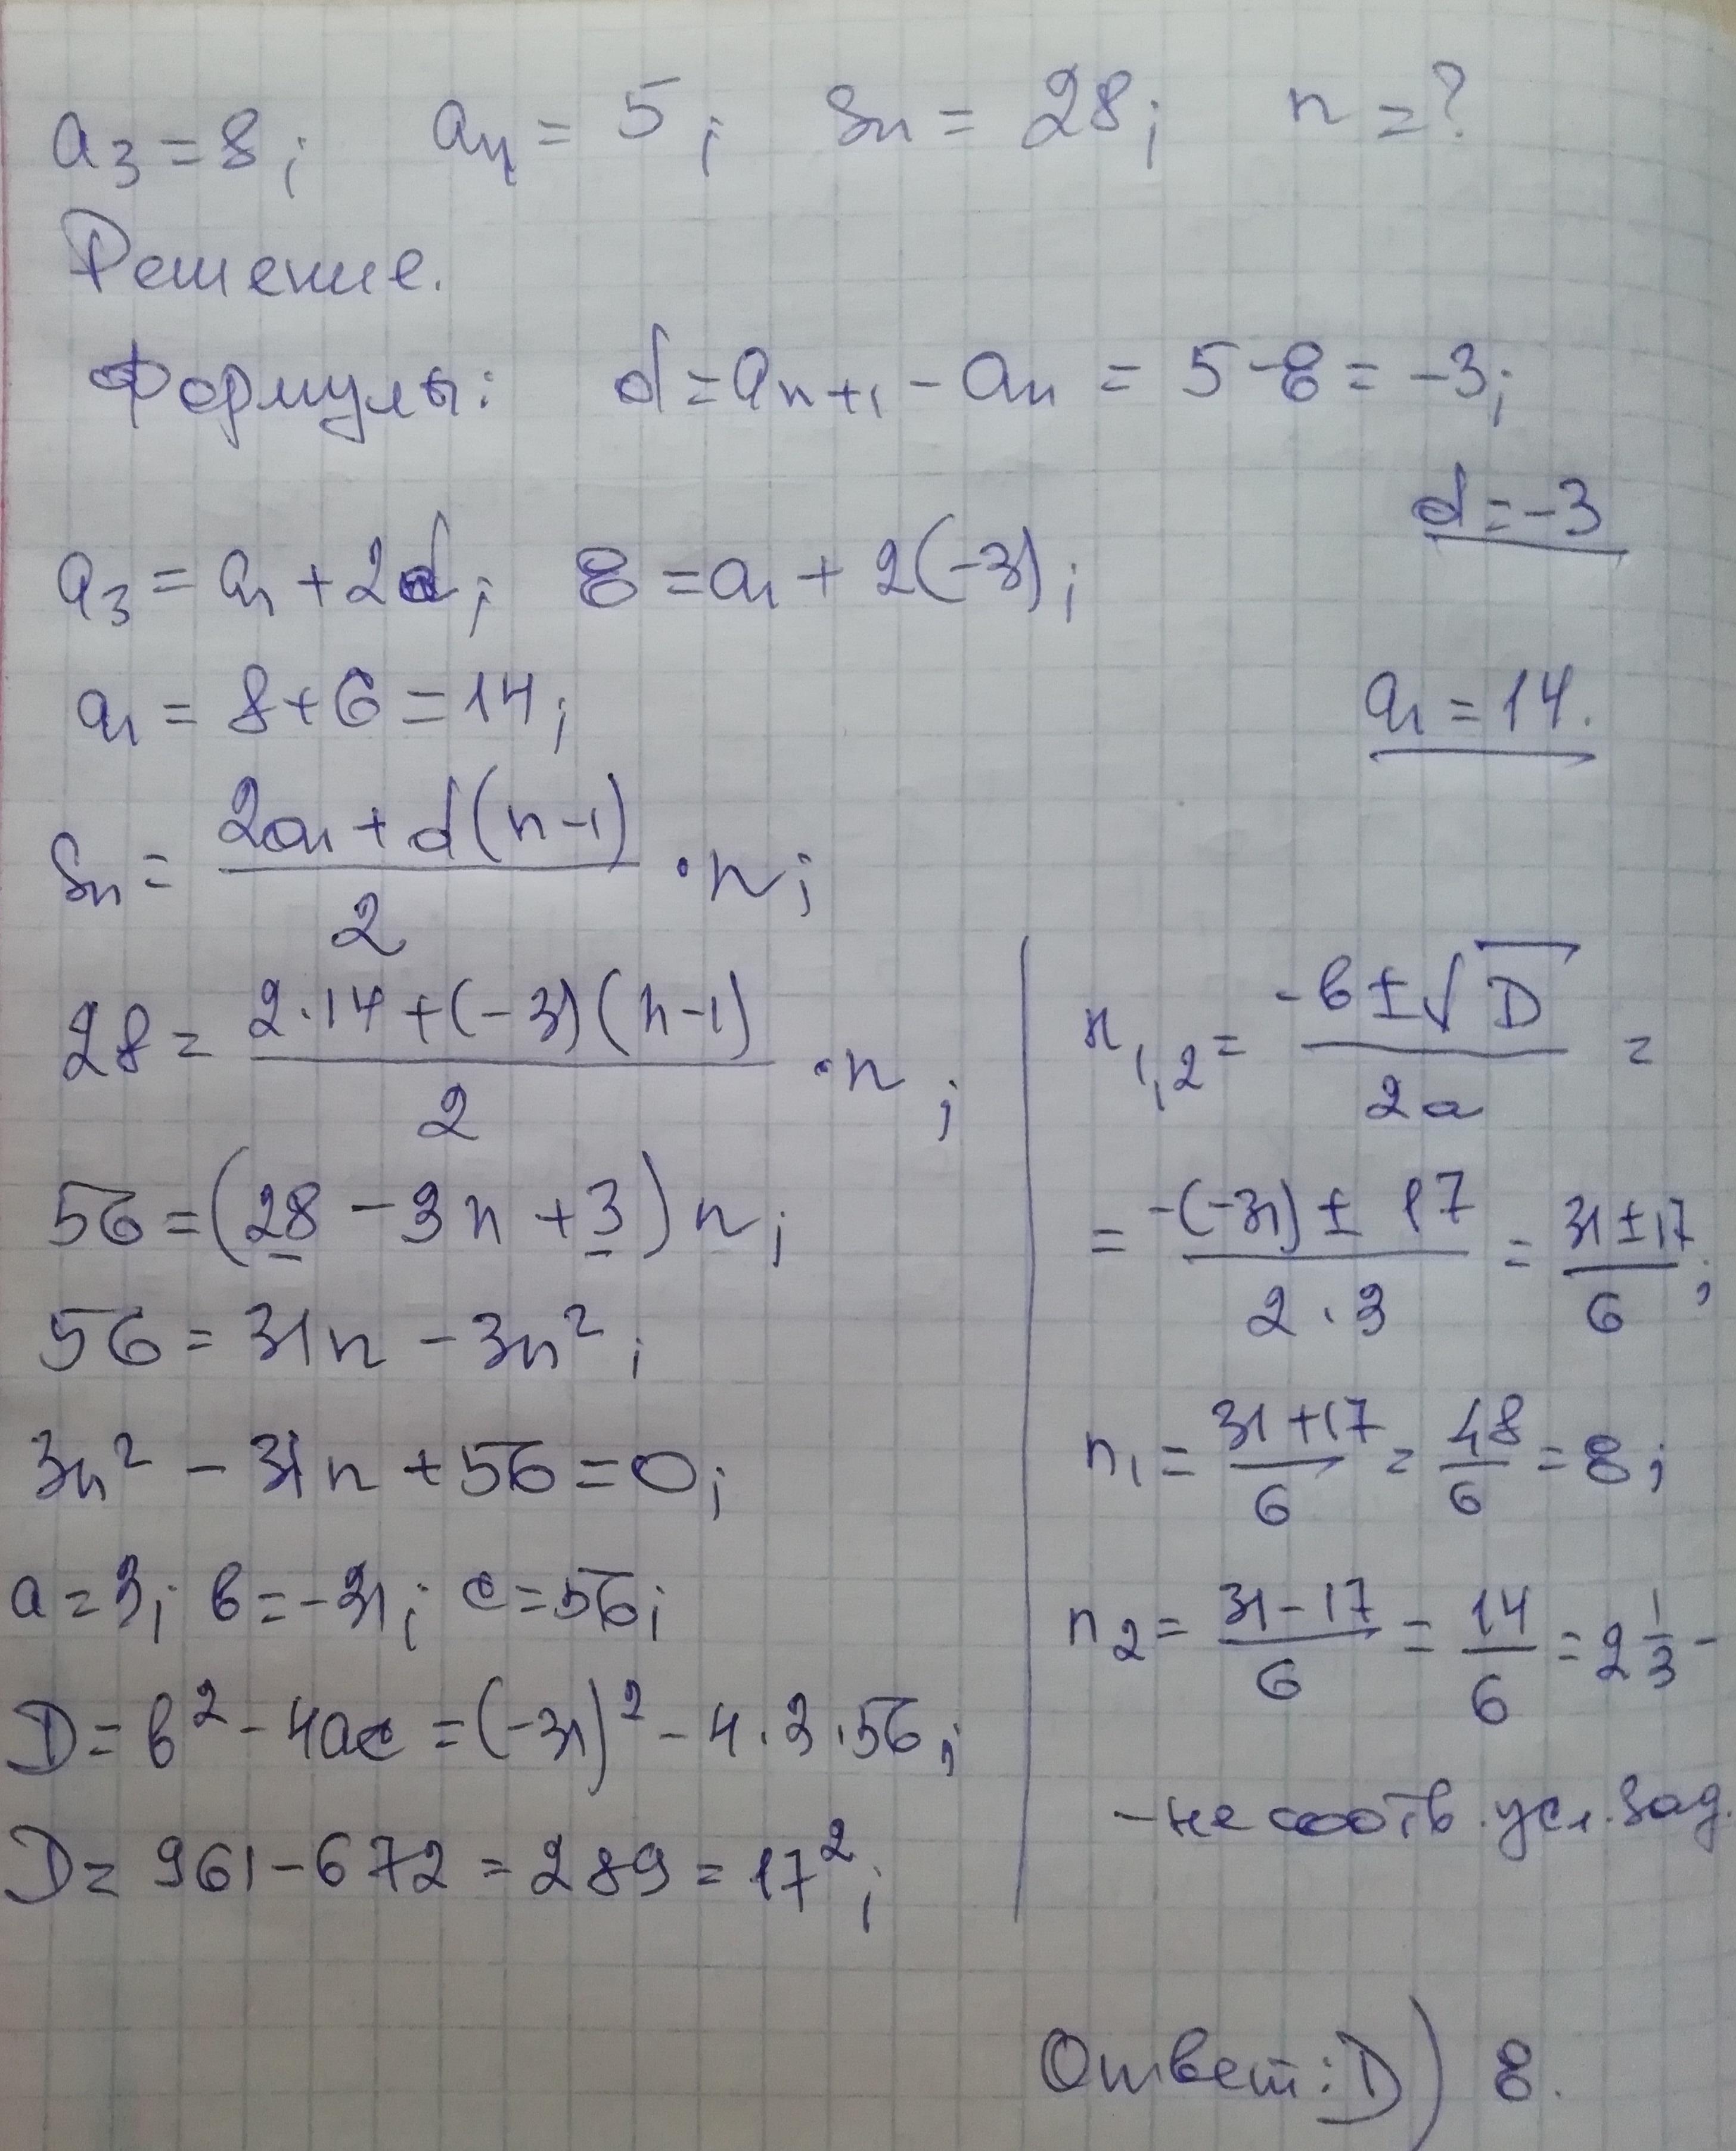 a₃ = 8; a₄ = 5; Sₙ = 28; n = ?
Решение.
Формулы: d = aₙ₊₁ - aₙ = 5 - 8 = -3;
d = -3
a₃ = a₁ + 2d; 8 = a₁ + 2(-3);
a₁ = 8 + 6 = 14;
a₁ = 14.
Sₙ = (2a₁ + d(n-1))/2 · n;
28 = (2·14 + (-3)(n-1))/2 · n;
56 = (28 - 3n + 3)n;
56 = 31n - 3n²;
3n² - 31n + 56 = 0;
a = 3; в = -31; c = 56;
D = в² - 4ac = (-31)² - 4·3·56;
D = 961 - 672 = 289 = 17²;
n₁,₂ = (-в ± √D)/2a =
= (-(-31) ± 17)/(2·3) = (31 ± 17)/6;
n₁ = (31 + 17)/6 = 48/6 = 8;
n₂ = (31 - 17)/6 = 14/6 = 2 1/3 -
- не соотв. усл. зад.
Ответ: D) 8.